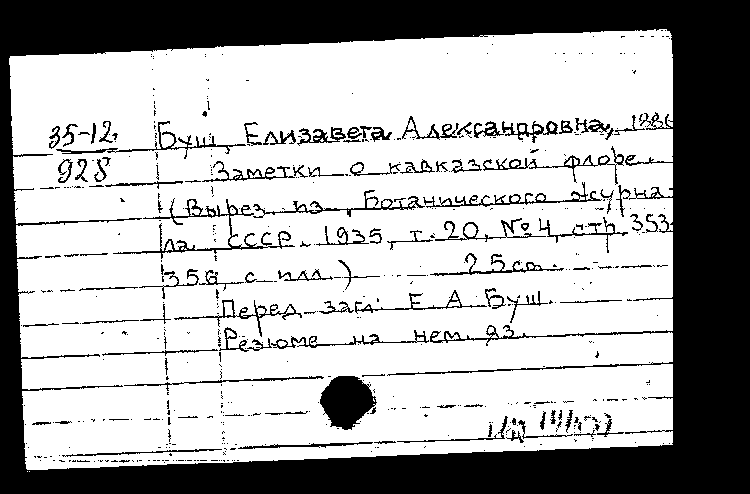 35-12
928
Буш, Елизавета Александровна, 1886
Заметки о кавказской флоре.
(Вырез. из „Ботанического журна-
ла СССР. 1935, т. 20, № 4, стр. 353-
356, с илл.) 25 cm.
Перед загл: Е. А Буш.
Резюме на нем. яз.